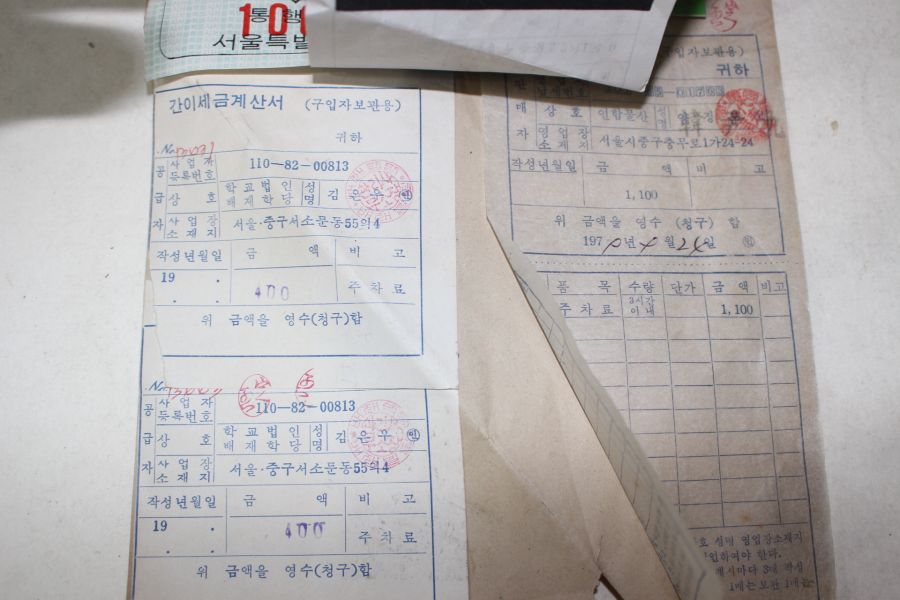 통행
101
서울특별
간이세금계산서 (구입자보관용)
귀하
공 사업자 등록번호 110-82-00813
급 상호 학교법인 배재학당 성명 김은우 ㊞
자 사업장 소재지 서울·중구서소문동55의4
작성년월일 금액 비고
19 . . 400 주차료
위 금액을 영수(청구)합
공 사업자 등록번호 110-82-00813
급 상호 학교법인 배재학당 성명 김은우 ㊞
자 사업장 소재지 서울·중구서소문동55의4
작성년월일 금액 비고
19 . . 400 주차료
위 금액을 영수(청구)합
구입자보관용)
귀하
매 상호 성명
자 영업장 소재지 서울시중구충무로1가24-24
작성년월일 금액 비고
1,100
위 금액을 영수 (청구) 합
197 년 월 24일 ㊞
품목 수량 단가 금액 비고
주차료 3시간 이내 1,100
호 성명 영업장소재지
인하여야 한다.
3매 작성
1매는 보관 1매는